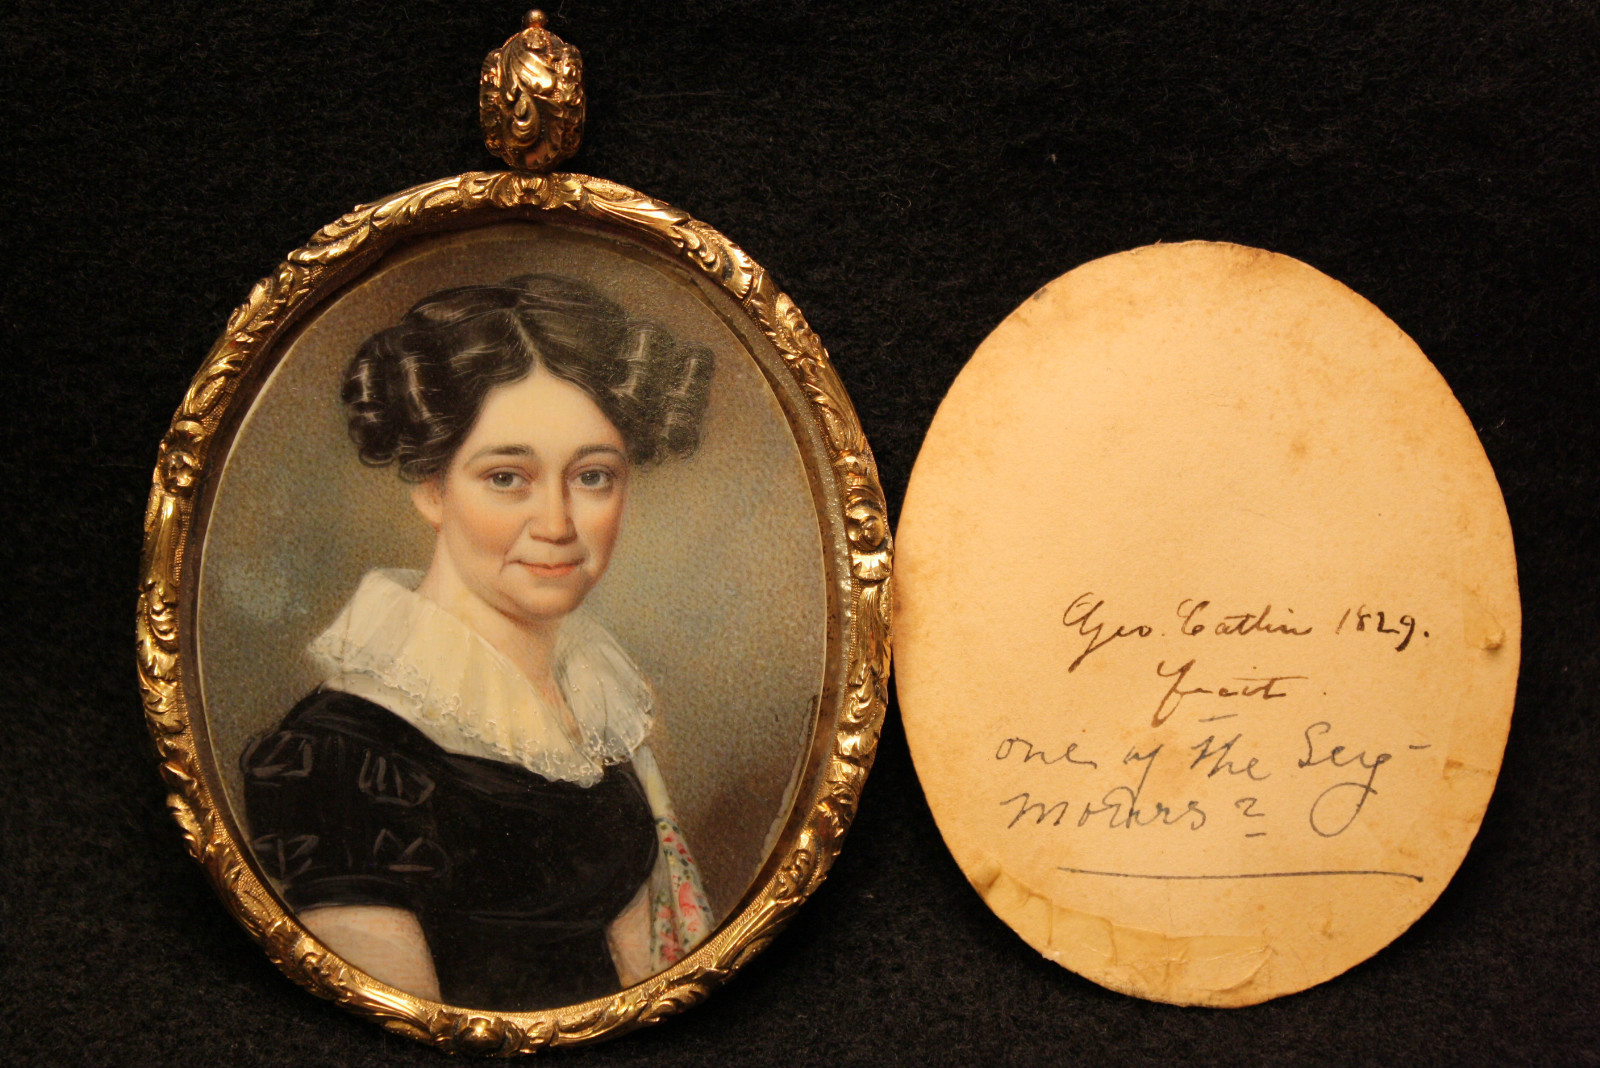 Geo. Catlin 1829.
fecit.
one of the Sey-
mours?